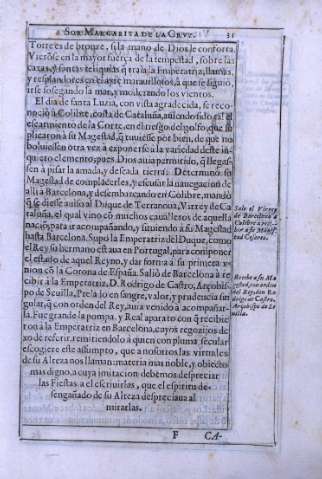 a Sor Margarita de la Crvz. 31
Torres de bronze, si la mano de Dios le conforta.
Vierõse en la mayor fuerça de la tempestad, sobre las
caxas, y santas reliquias q̃ traîa la Emperatriz, llamas,
y resplandores en claros, y marauillosos, à que se siguio,
irse sossegando la mar, y moderando los vientos.
El dia de santa Luzia, con vista agradecida, se reco-
nociò à Colibre, costa de Cataluña, auiendo sido tã el
escarmiento de la Corte, en el riesgo del golfo, que su
plicaron à su Magestad, q̃ tuuiesse por bien, de que no
boluiessen otra vez à exponerse a la variedad deste in-
quieto elemento, pues Dios auia permitido, q̃ llegas-
sen à pisar la amada, y deseada tierra. Determinò su
Magestad de complacerles, y escusar la nauegacion de
alli à Barcelona, y desembarcando en Colibre, mandò
q̃ se diesse auiso al Duque de Terranoua, Virrey de Ca
taluña, el qual vino cõ muchos caualleros de aquella
naciõ, para ir acompañando, y siruiendo à su Magestad
hasta Barcelona. Supo la Emperatriz del Duque, como
el Rey su hermano estaua en Portugal, para componer
el estado de aquel Reyno, y dar forma à su primera v-
nion cõ la Corona de España. Saliò de Barcelona à re-
cibir à la Emperatriz, D. Rodrigo de Castro, Arçobis-
po de Seuilla, Prelado en sangre, valor, y prudencia sin
gular, q̃ con orden del Rey, auia venido à acompañar-
la. Fue grande la pompa, y Real aparato con q̃ recibie-
ron à la Emperatriz en Barcelona, cuyos regozijos de
xo de referir, remitiendolo à quien con pluma secular
escogiere este assumpto, que à nosotros las virtudes
de su Alteza nos llaman, materia mas noble, y objecto
mas digno, a cuya imitacion debemos despreciar
las Fiestas, al escriuirlas, que el espiritu de-
sengañado de su Alteza despreciaua al
mirarlas.
Sale el Virrey
de Barcelona à
Colibre à reci-
bir à su Mages-
tad Cesarea.
Recibe à su Ma
gestad, con orden
del Rey, don Ro
drigo de Castro,
Arçobispo de Se
uilla.
F CA-